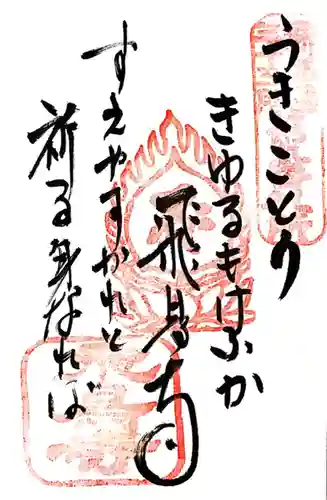 うきことり
きゆるもけふか
飛鳥寺
すえやすかれと
祈る身なれば